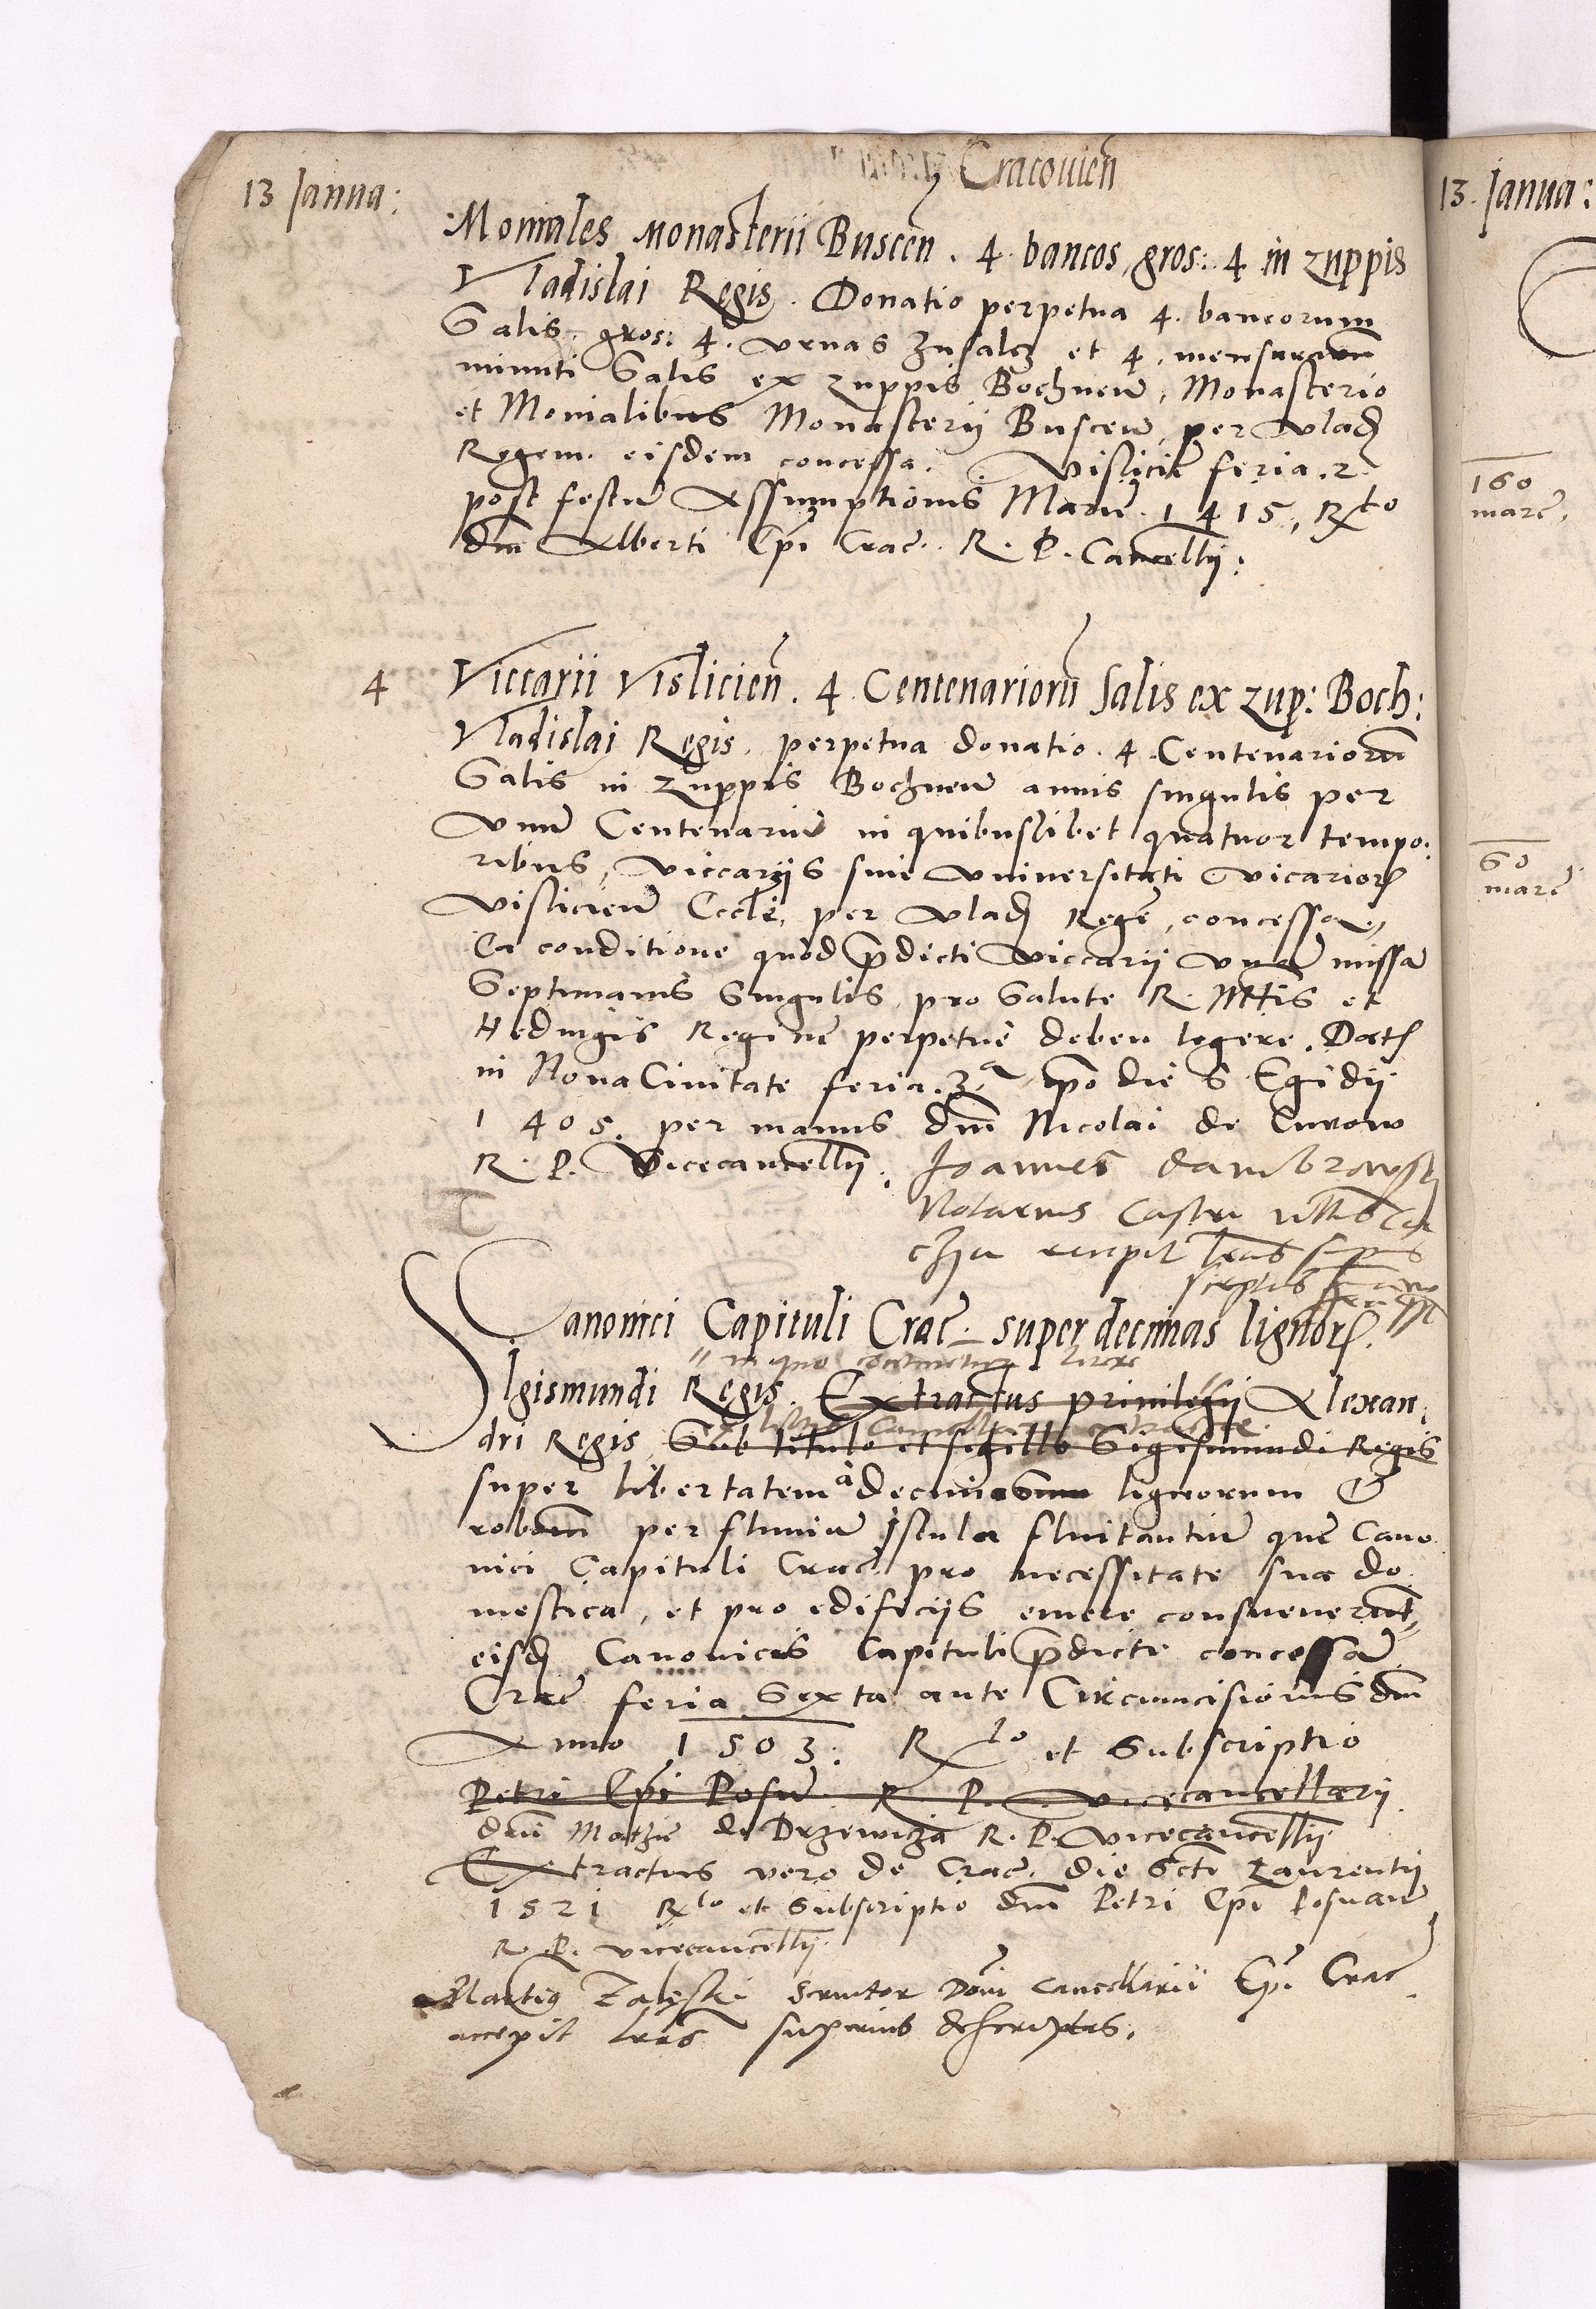 Cracouien
13 Janua:
Moniales Monasterii Buscen. 4 bancos gros: 4 in zuppis
Vladislai Regis. Donatio perpetua 4. bancorum
Salis gros: 4. vrnas et 4. mensurarum
minuti Salis ex zuppis Bochnen, Monasterio
et Monialibus Monasterij Buscen, per Vlad
Regem eisdem concessa. Visliciæ feria .2.
post festum Assumptionis Mariæ 1415, Rto
dni Alberti Epi Crac. R. P. Cancellij:
4
Viccarii Vislicien. 4 Centenarioru Salis ex zup: Boch:
Vladislai Regis. perpetua donatio. 4. Centenarioru
Salis in zuppis Bochnen annis singulis per
vnu Centenariu in quibuslibet quatuor tempo:
ribus, viccarijs siue vniuersitati vicarior
Vislicien Eccle, per Vlad Rege, concessa,
Ea conditione quod prædicti Viccarij vna missa
Septimanis Singulis pro Salute R. Mtis et
Heduigis Reginæ perpetuè deben legere. Dat
in Noua Ciuitate feria .3.a ipo die S Egidij
1405. per manus dni Nicolai de Curow
R. P. Vicecancellij.
Joannes Dambrowski
Notarius Castri
recepit lras supius
scriptas
Canonici Capituli Crac. super decimas lignor.
in quo continetur
Sigismundi Regis. Extractus priuilegij Alexan:
dri Regis Sub titulo et sigillo Sigismundi Regis
super libertatem à decimis lignorum &
roborum per fluuiu Istula fluitantiu que Cano
nici Capituli Crac pro necessitate sua do
mestica, et pro edificijs emere consueuerunt,
eisd Canonicis Capituli prædicte concessa
Crac feria Sexta ante Circumcisionis dni
Anno 1503: Rto et Subscriptio
Petri Epi Posn R. P. vicecancellarij
dni Mathie de Drzewicza R. P. vicecancellij
Extractus vero de Crac. die Scti Laurentij
1521 Rto et Subscriptio dni Petri Epi Posnan
R. P. vicecancellij
Martinus Zaleski Seruitor Domi Cancellarii Epi Crac
accepit lras superius descriptas.
13. Janua:
160
marc.
60
marc